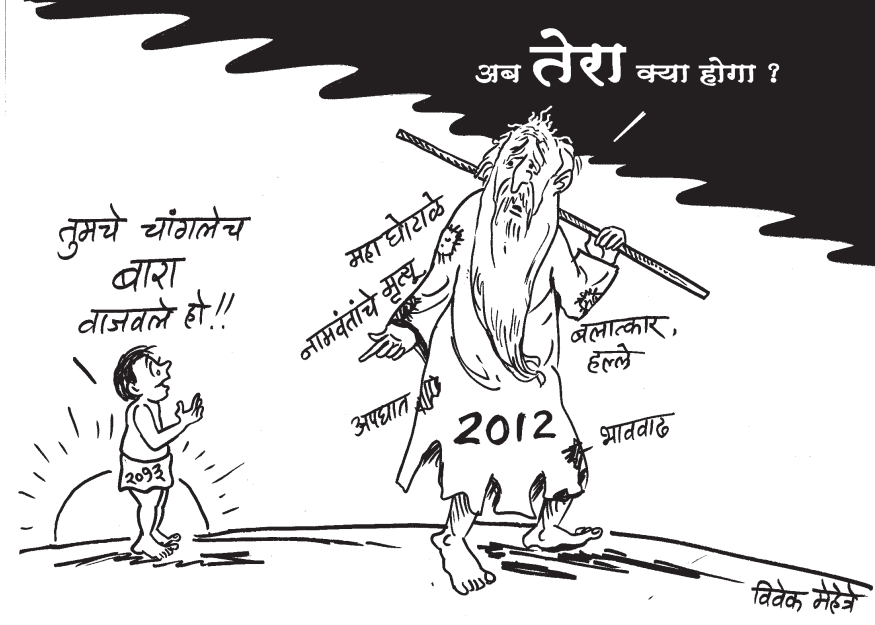 अब तेरा क्या होगा ?
तुमचे चांगलेच
बारा
वाजवले हो!!
महा घोटाळे
नामवंतांचे मृत्यू
अपघात
बलात्कार,
हल्ले
भाववाढ
2012
२०१३
विवेक मेहेत्रे